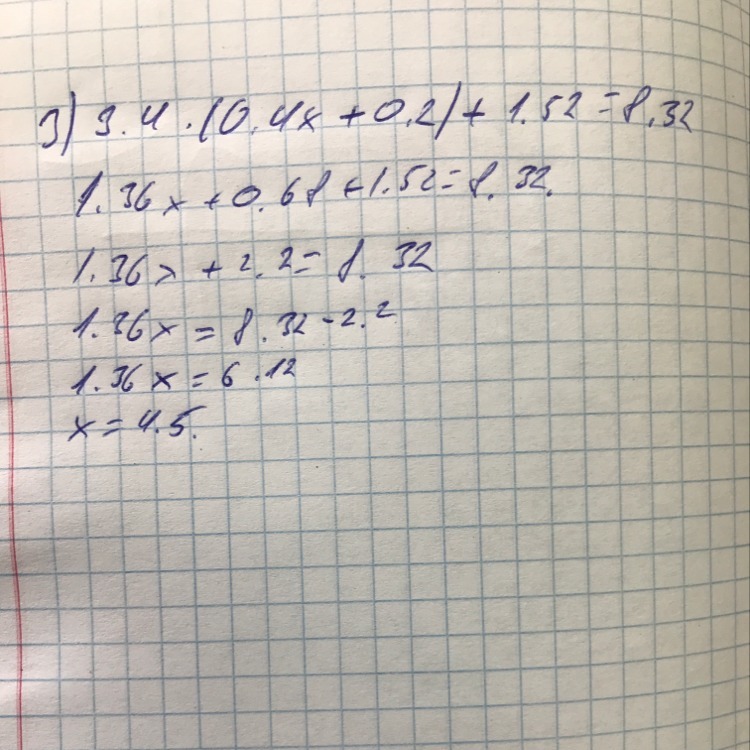 3) 3.4 · (0.4x + 0.2) + 1.52 = 8.32
1.36x + 0.68 + 1.52 = 8.32.
1.36x + 2.2 = 8.32
1.36x = 8.32 - 2.2
1.36x = 6.12
x = 4.5.